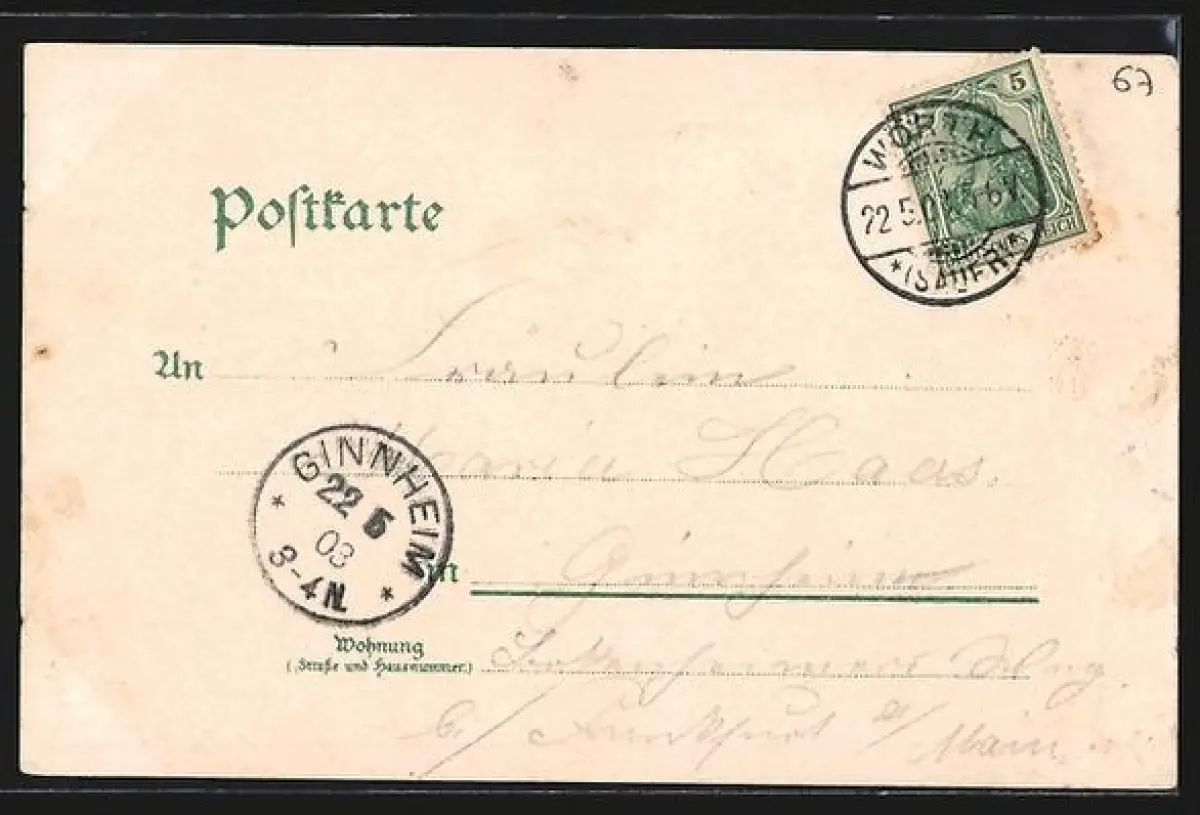 67
5
WÖRTH
22.5.
5-6V
*(SAUER)*
REICH
Postkarte
An Fräulein
Maria Haas.
GINNHEIM
22 5
03
3-4N
in Ginnheim
Wohnung
(Straße und Hausnummer.)
b/ Frankfurt a/ Main